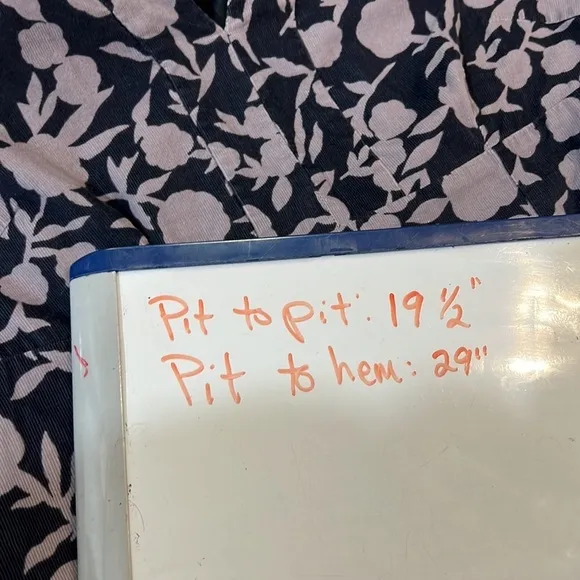 Pit to pit: 19 ½"
Pit to hem: 29"